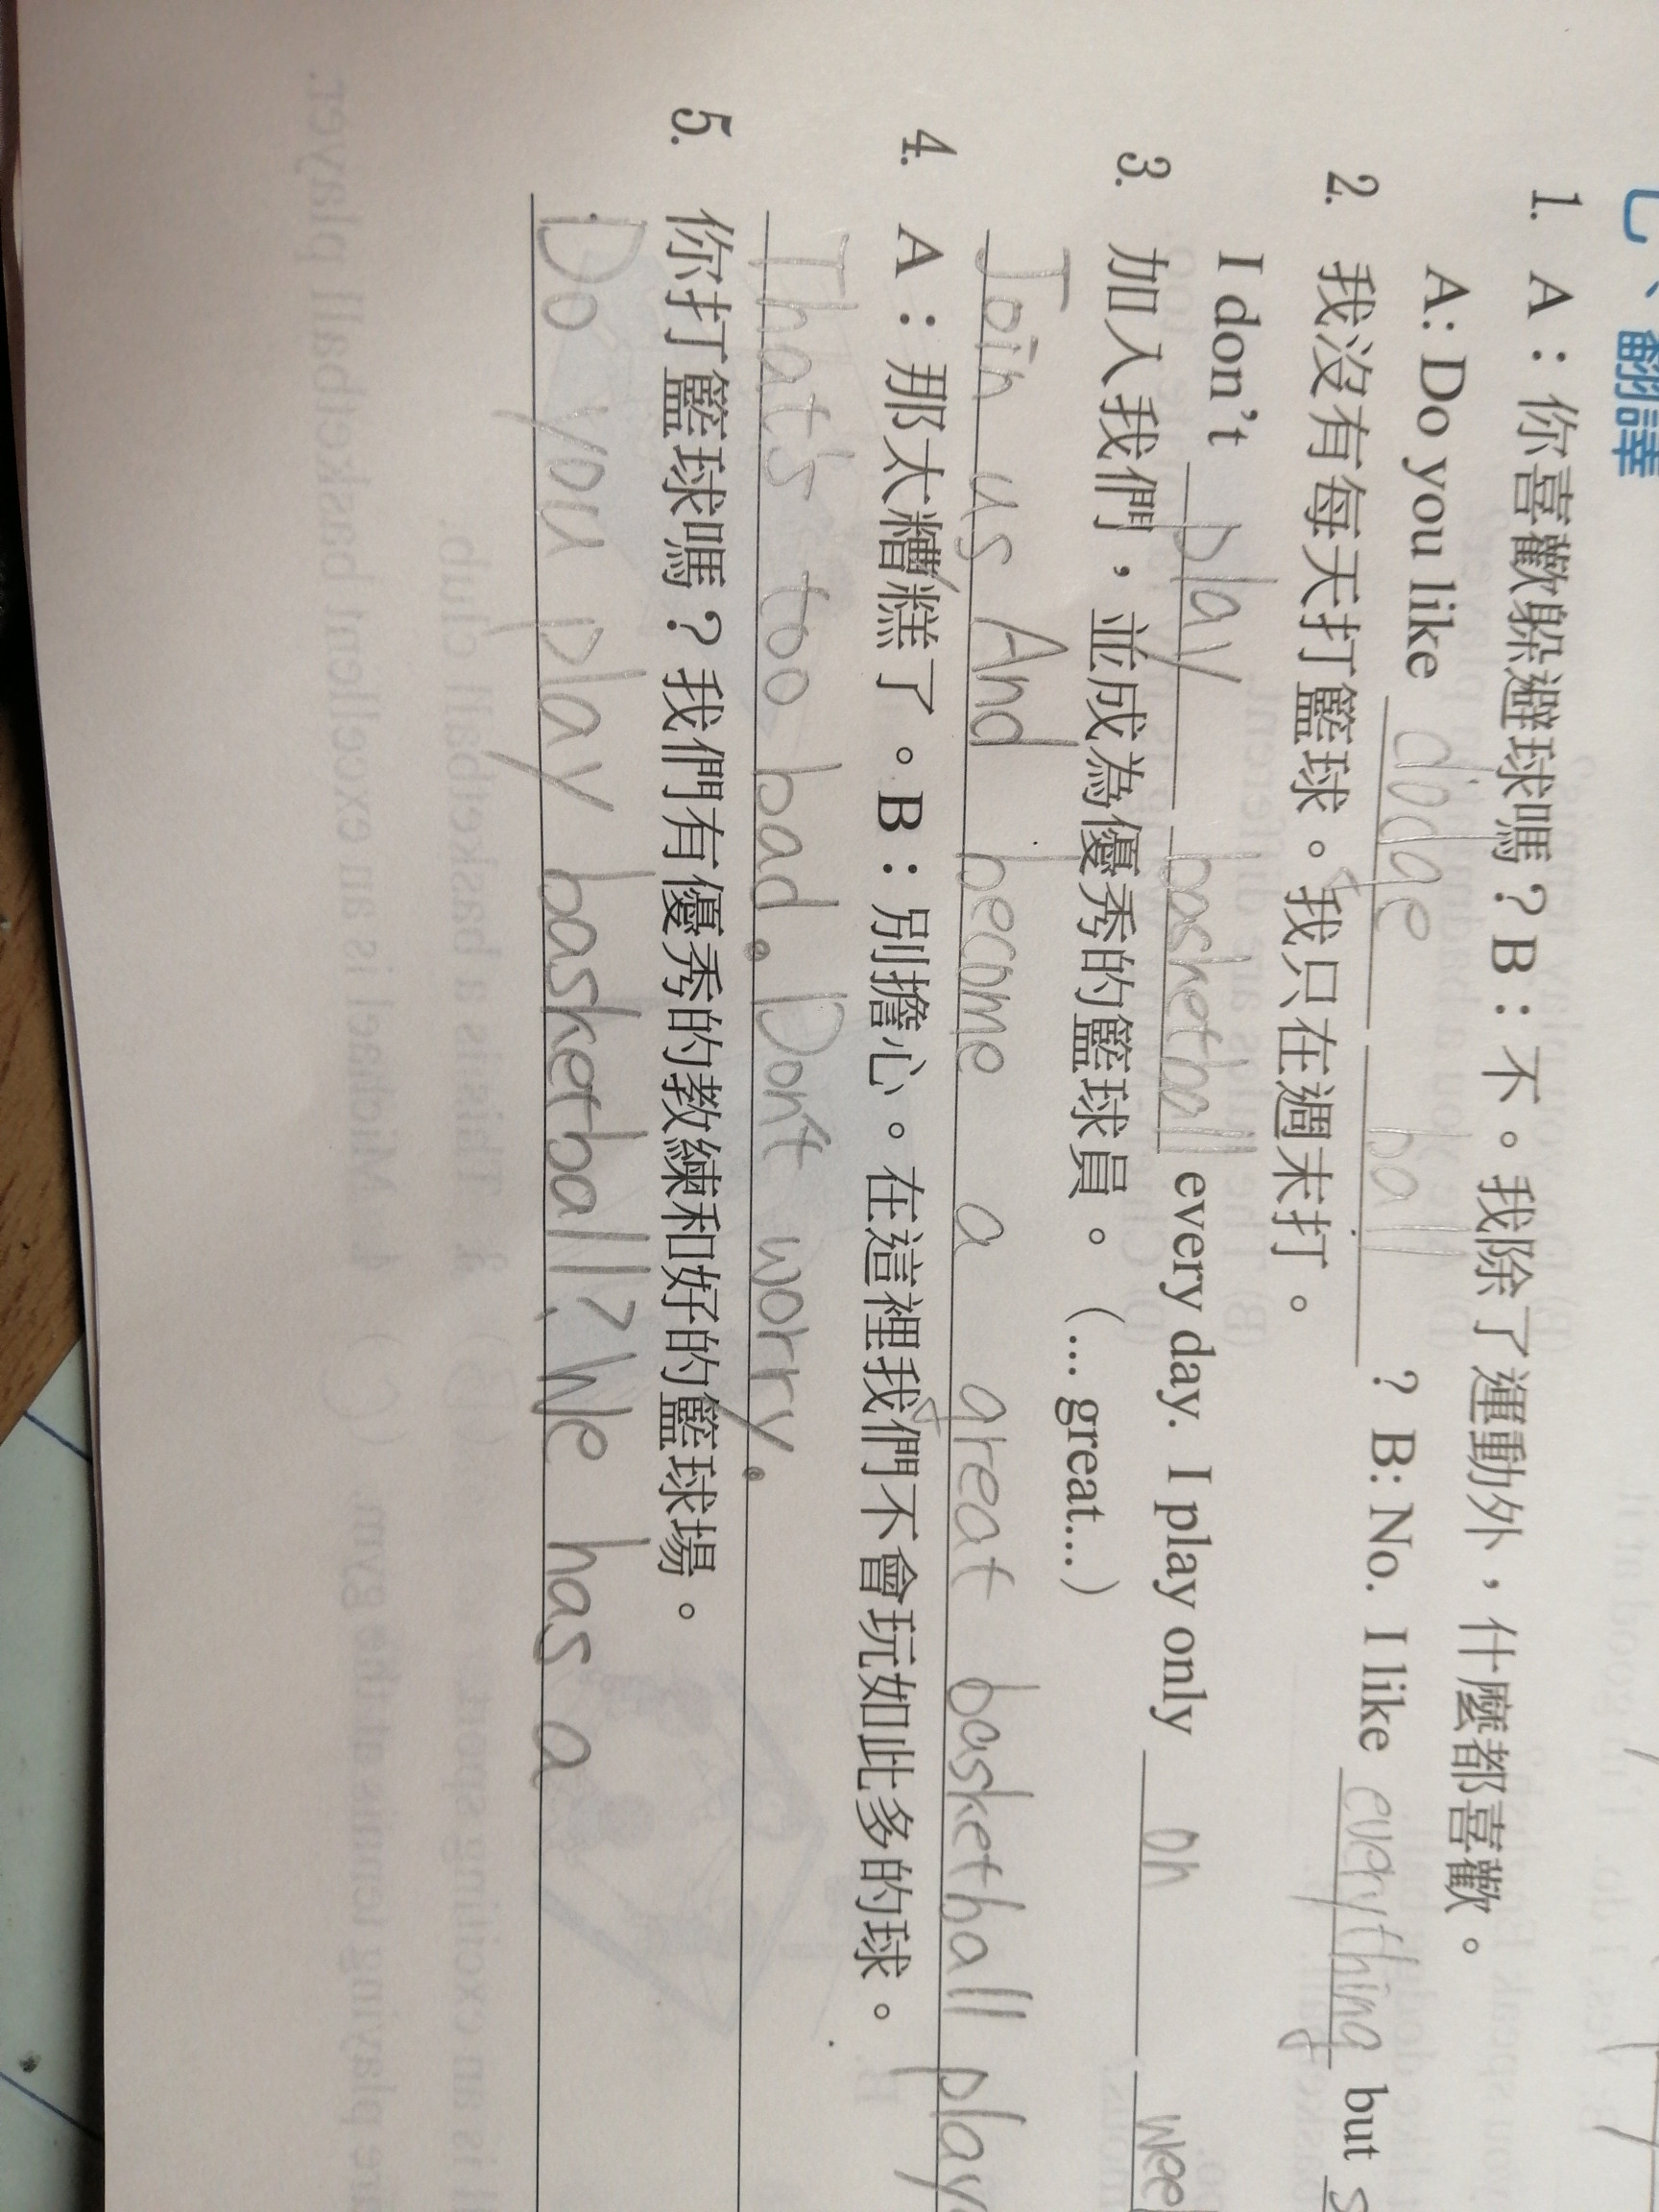 七、翻譯
1. A：你喜歡躲避球嗎？B：不。我除了運動外，什麼都喜歡。
A: Do you like dodge ball ? B: No. I like everything but
2. 我沒有每天打籃球。我只在週末打。
I don't play basketball every day. I play only on
3. 加入我們，並成為優秀的籃球員。（... great...）
Join us And become a great basketball
4. A：那太糟糕了。B：別擔心。在這裡我們不會玩如此多的球。
That's too bad. Don't worry.
5. 你打籃球嗎？我們有優秀的教練和好的籃球場。
Do you play basketball? We has a